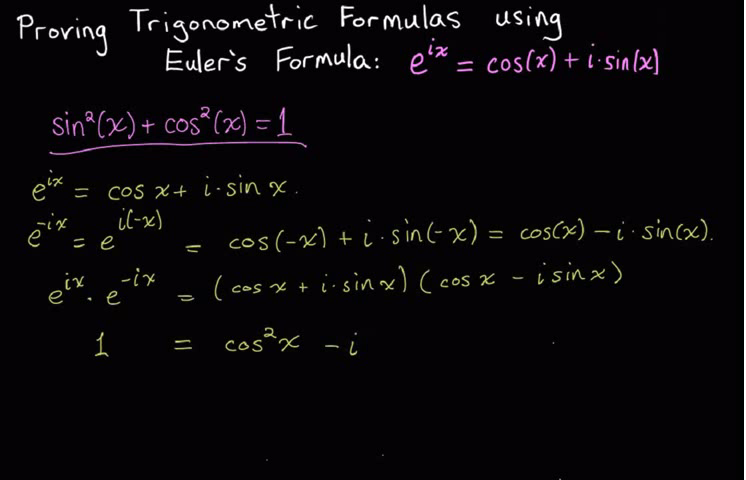 Proving Trigonometric Formulas using
Euler's Formula: e^{ix} = cos(x) + i·sin(x)
sin²(x) + cos²(x) = 1
e^{ix} = cos x + i·sin x.
e^{-ix} = e^{i(-x)} = cos(-x) + i·sin(-x) = cos(x) - i·sin(x).
e^{ix} · e^{-ix} = (cos x + i·sin x)(cos x - i sin x)
1 = cos²x - i